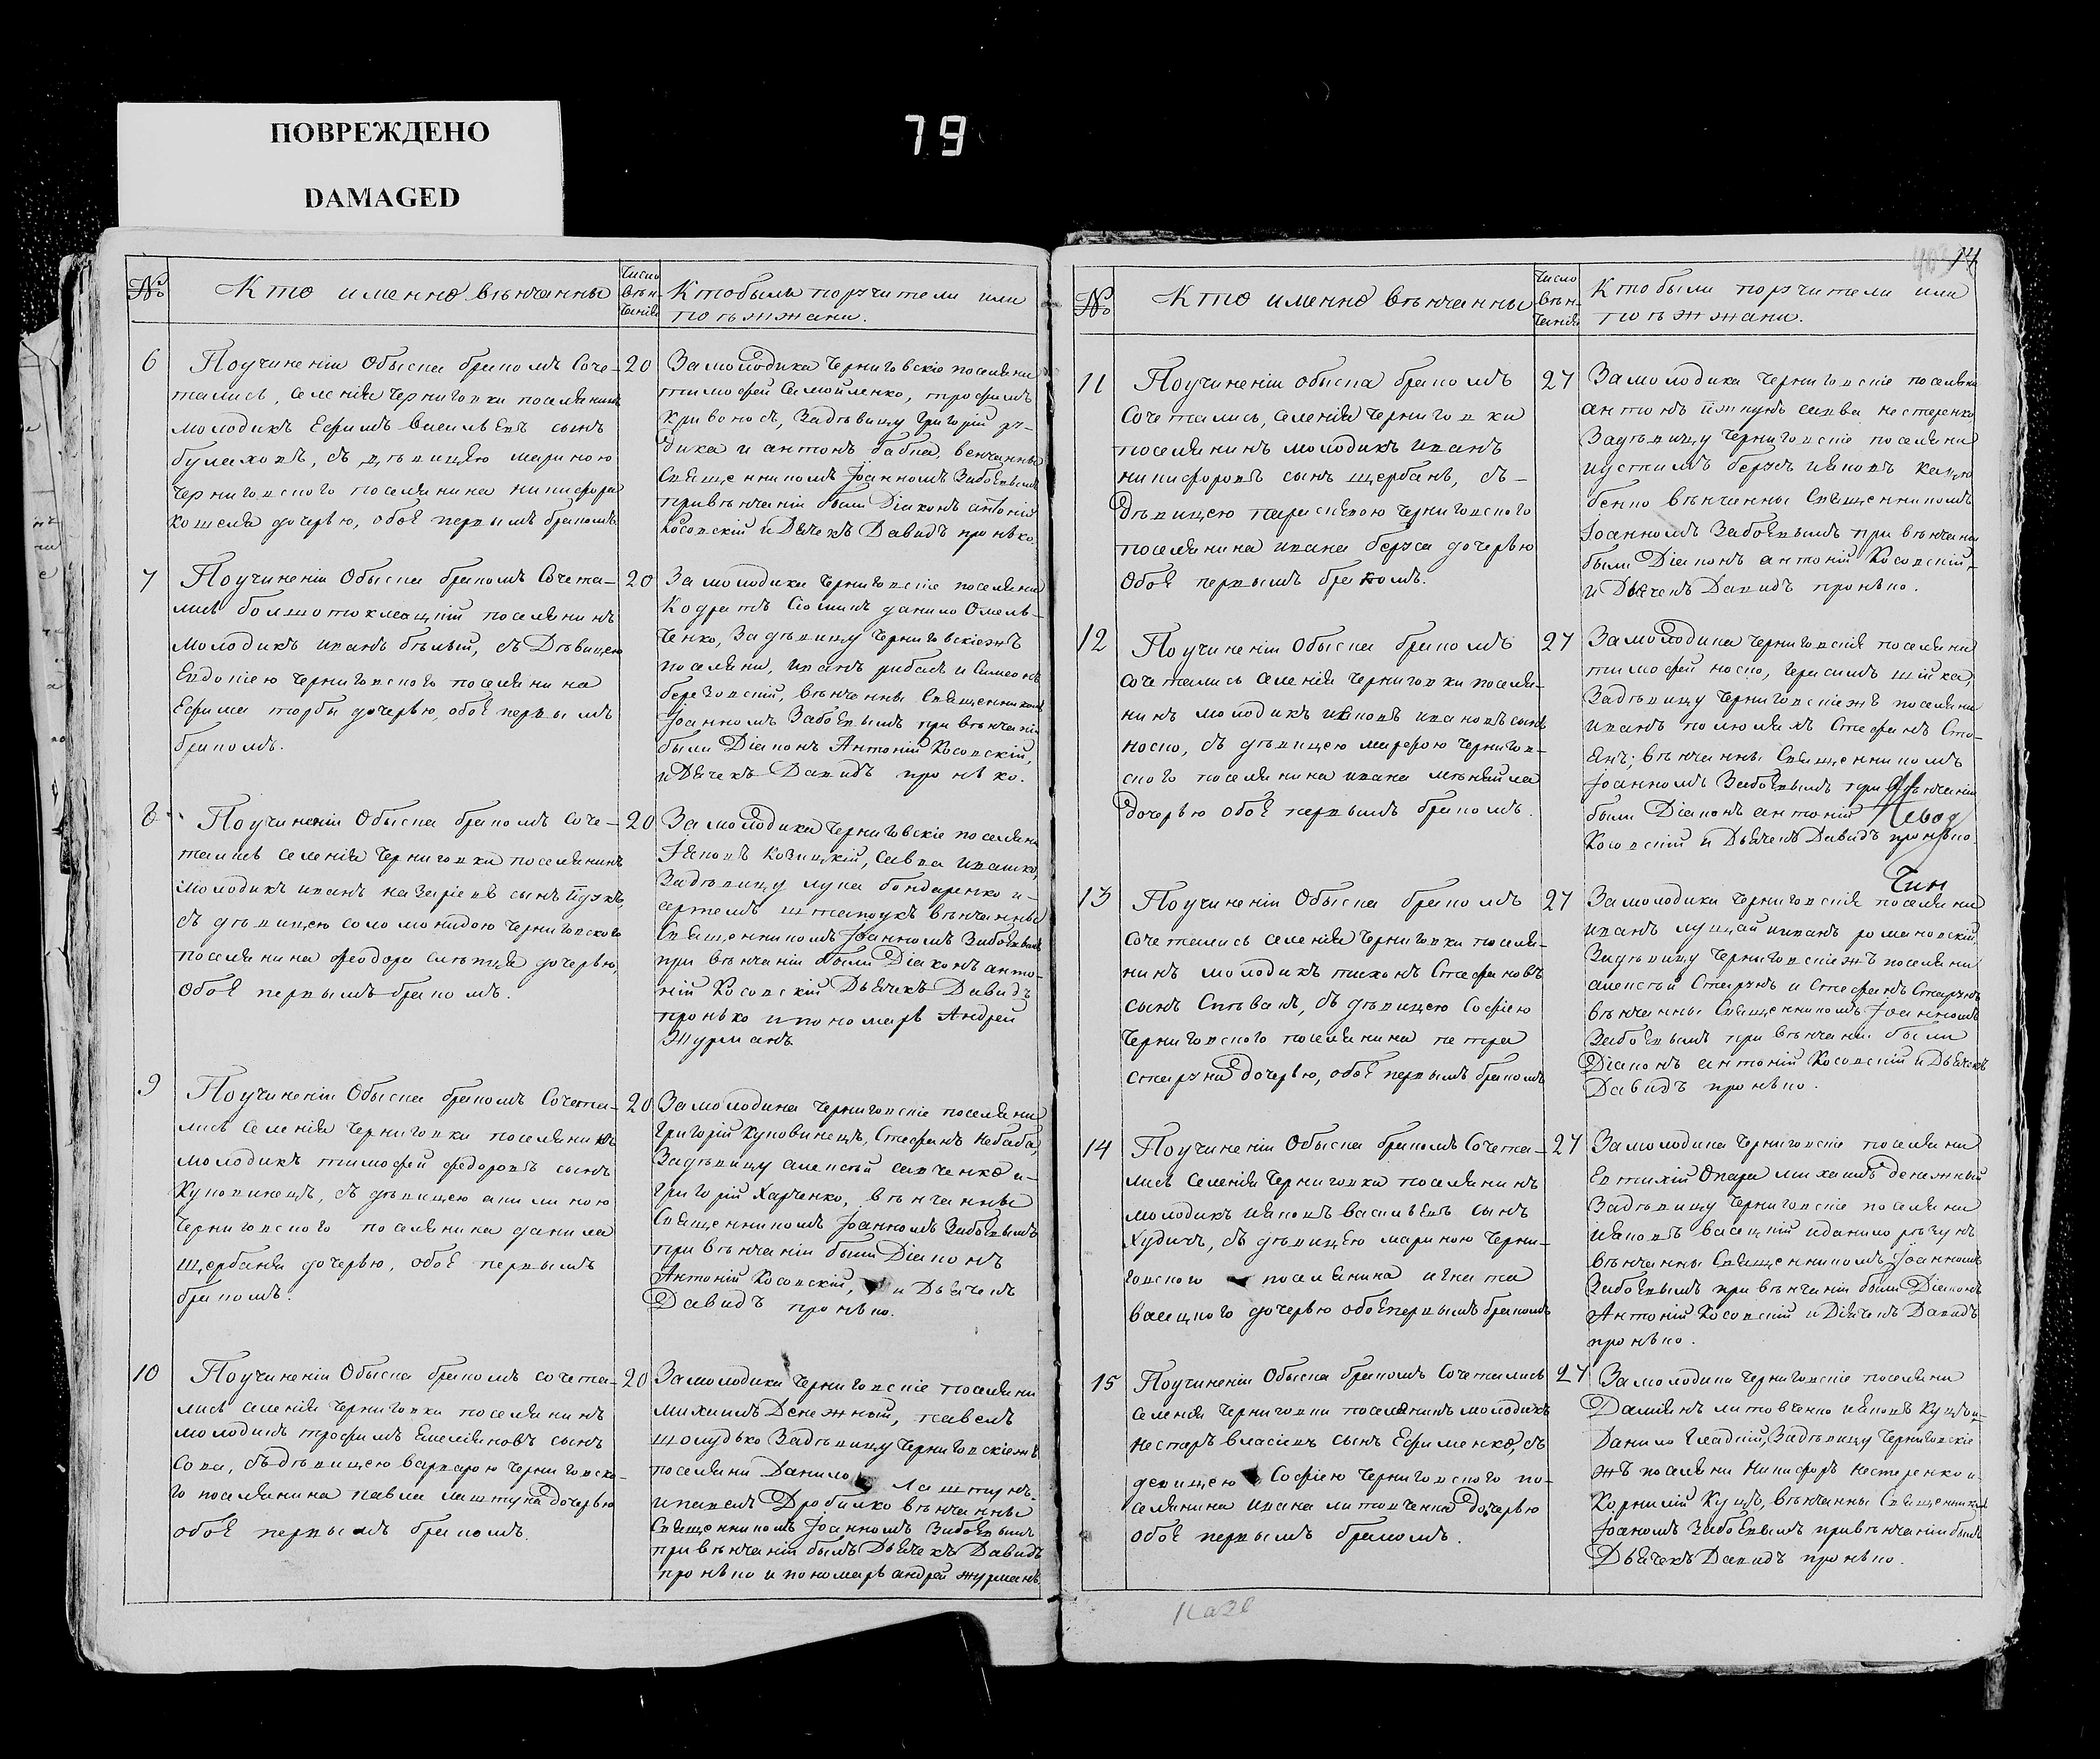 ПОВРЕЖДЕНО
DAMAGED
79
№
Кто именно вѣнчанны
Число
вѣн-
чанія
Кто были поручители или
поѣзжани.
6
По учиненіи Обыска бракомъ Соче-
тались, селенія Черниговки поселянинъ
молодикъ Ефимъ Васильевъ сынъ
булаховъ, съ дѣвицею мариною
Черниговского поселянина никифора
кошеля дочерью, обоѣ первымъ бракомъ
20
За молодика Черниговскіе поселяни
тимофей Самойленко, трофимъ
Кривоносъ, За дѣвицу Григорій ру-
дика и антонъ бабка, венчанны
Священникомъ Іоанномъ Забоевымъ
при вѣнчаніи были Діаконъ антоній
Косовскій и Дьячекъ Давидъ пронько.
7
По учиненіи Обыска бракомъ Сочета-
лись большотокмацкій поселянинъ
молодикъ иванъ бѣлый, съ Дѣвицею
Евдокіею Черниговского поселянина
Ефима торбы дочерью, обоѣ первымъ
бракомъ.
20
За молодика Черниговскіе поселяни
Кодратъ данило Омель-
ченко, За дѣвицу Черниговскіежъ
поселяни, иванъ рибалъ и Симеонъ
березовскій, вѣнчанны Священникомъ
Іоанномъ Забоевымъ при вѣнчаніи
были Діаконъ Антоній Косовскій,
и Дьячекъ Давидъ пронько.
8
По учиненіи Обыска бракомъ Соче-
тались селенія Черниговки поселянинъ
молодикъ иванъ назаріевъ сынъ
съ дѣвицею соломонидою Черниговского
поселянина феодора слѣпця дочерью,
обоѣ первымъ бракомъ.
20
За молодика Черниговскіе поселяни
Яковъ Козицкій, Савва ивашко,
За дѣвицу лука бондаренко и-
артемъ вѣнчанны
Священникомъ Іоанномъ Забоевымъ
при вѣнчаніи были Діаконъ анто-
ній Косовскій Дьячекъ Давидъ
пронько и пономарь Андрей
Журманъ
9
По учиненіи Обыска бракомъ Сочета-
лись Селенія Черниговки поселянинъ
молодикъ тимофей федоровъ сынъ
Куповинецъ, съ дѣвицею акилиною
Черниговского поселянина данила
щербаня дочерью, обоѣ первымъ
бракомъ.
20
За молодика Черниговскіе поселяни
Григорій Куповинецъ, Стефанъ небаба,
За дѣвицу алексѣй савченко и-
григорій Харченко, вѣнчанны
Священникомъ Іоанномъ Забоевымъ
при вѣнчаніи были Діаконъ
Антоній Косовскій, и Дьячекъ
Давидъ пронько.
10
По учиненіи Обыска бракомъ сочета-
лись селенія Черниговки поселянинъ
молодикъ трофимъ Емеліановъ сынъ
Сова, съ дѣвицею варварою Черниговско-
го поселянина павла лаштуна дочерью
обоѣ первымъ бракомъ.
20
За молодика Черниговскіе поселяни
михаилъ Денежный, павелъ
шолудько За дѣвицу Черниговскіежъ
поселяни Данило Лаштунъ
и павелъ Дробилко вѣнчанны
Священникомъ Іоанномъ Забоевымъ
при вѣнчаніи былъ Дьячекъ Давидъ
пронько и пономарь андрей журманъ
14
№
Кто именно вѣнчанны
Число
вѣн-
чанія
Кто были поручители или
поѣзжани.
11
По учиненіи обыска бракомъ
сочетались, селенія Черниговки
поселянинъ молодикъ иванъ
никифоровъ сынъ щербань, съ-
Дѣвицею параскевою Черниговского
поселянина ивана беруса дочерью
Обоѣ первымъ бракомъ.
27
За молодика Черниговскіе поселяни
антонъ савва нестеренко
За дѣвицу Черниговскіе поселяни
иустимъ берусъ иаковъ
вѣнчанны Священникомъ
Іоанномъ Забоевымъ при вѣнчаніи
были Діаконъ антоній Косовскій,
и Дьячекъ Давидъ пронько.
12
По учиненіи Обыска бракомъ
сочетались селенія Черниговки поселя-
нинъ молодикъ иаковъ ивановъ сынъ
носко, съ дѣвицею марфою Чернигов-
ского поселянина ивана
дочерью обоѣ первымъ бракомъ.
27
За молодика Черниговскія поселяни
тимофей носко, герасимъ шійка,
За дѣвицу Черниговскіежъ поселяни
иванъ Стефанъ Сто-
янъ; вѣнчанны Священникомъ
Іоанномъ Забоевымъ при вѣнчаніи
были Діаконъ антоній
Косовскій и Дьячекъ Давидъ пронько
13
По учиненіи Обыска бракомъ
сочетались селенія Черниговки поселя-
нинъ молодикъ тихонъ Стефановъ
сынъ Спѣвакъ, съ дѣвицею Софіею
Черниговского поселянина петра
старуна дочерью, обоѣ первымъ бракомъ
27
За молодика Черниговскія поселяни
иванъ лущай иванъ романовскій
За дѣвицу Черниговскіежъ поселяни
алексѣй Старунъ и Стефанъ Старунъ
вѣнчанны Священникомъ Іоанномъ
Забоевымъ при вѣнчаніи были
Діаконъ антоній Косовскій и Дьячекъ
Давидъ пронько.
14
По учиненіи Обыска бракомъ Сочета-
лись Селенія Черниговки поселянинъ
молодикъ иаковъ васильевъ сынъ
Худичъ, съ дѣвицею мариною Черни-
говского поселянина игната
васецкого дочерью обоѣ первымъ бракомъ
27
За молодика Черниговскіе поселяни
Евтихій Опара михаилъ денежный
За дѣвицу Черниговскіе поселяни
иаковъ васецкій и данило рѣзунъ
вѣнчанны Священникомъ Іоанномъ
Забоевымъ при вѣнчаніи были Діаконъ
Антоній Косовскій и Дьячекъ Давидъ
пронько.
15
По учиненіи Обыска бракомъ Сочетались
селенія Черниговки поселянинъ молодикъ
нестеръ власіевъ сынъ Ефименко, съ
девицею Софіею Черниговского по-
селянина ивана литовченка дочерью
обоѣ первымъ бракомъ.
27
За молодика Черниговскіе поселяни
Даміянъ литовченко иаковъ
Данило Гладкій, За дѣвицу Черниговскіе
жъ поселяни Никифоръ нестеренко и-
Корнилій Куцъ, вѣнчанны Священникомъ
Іоаномъ Забоевымъ при вѣнчаніи былъ
Дьячекъ Давидъ пронько.